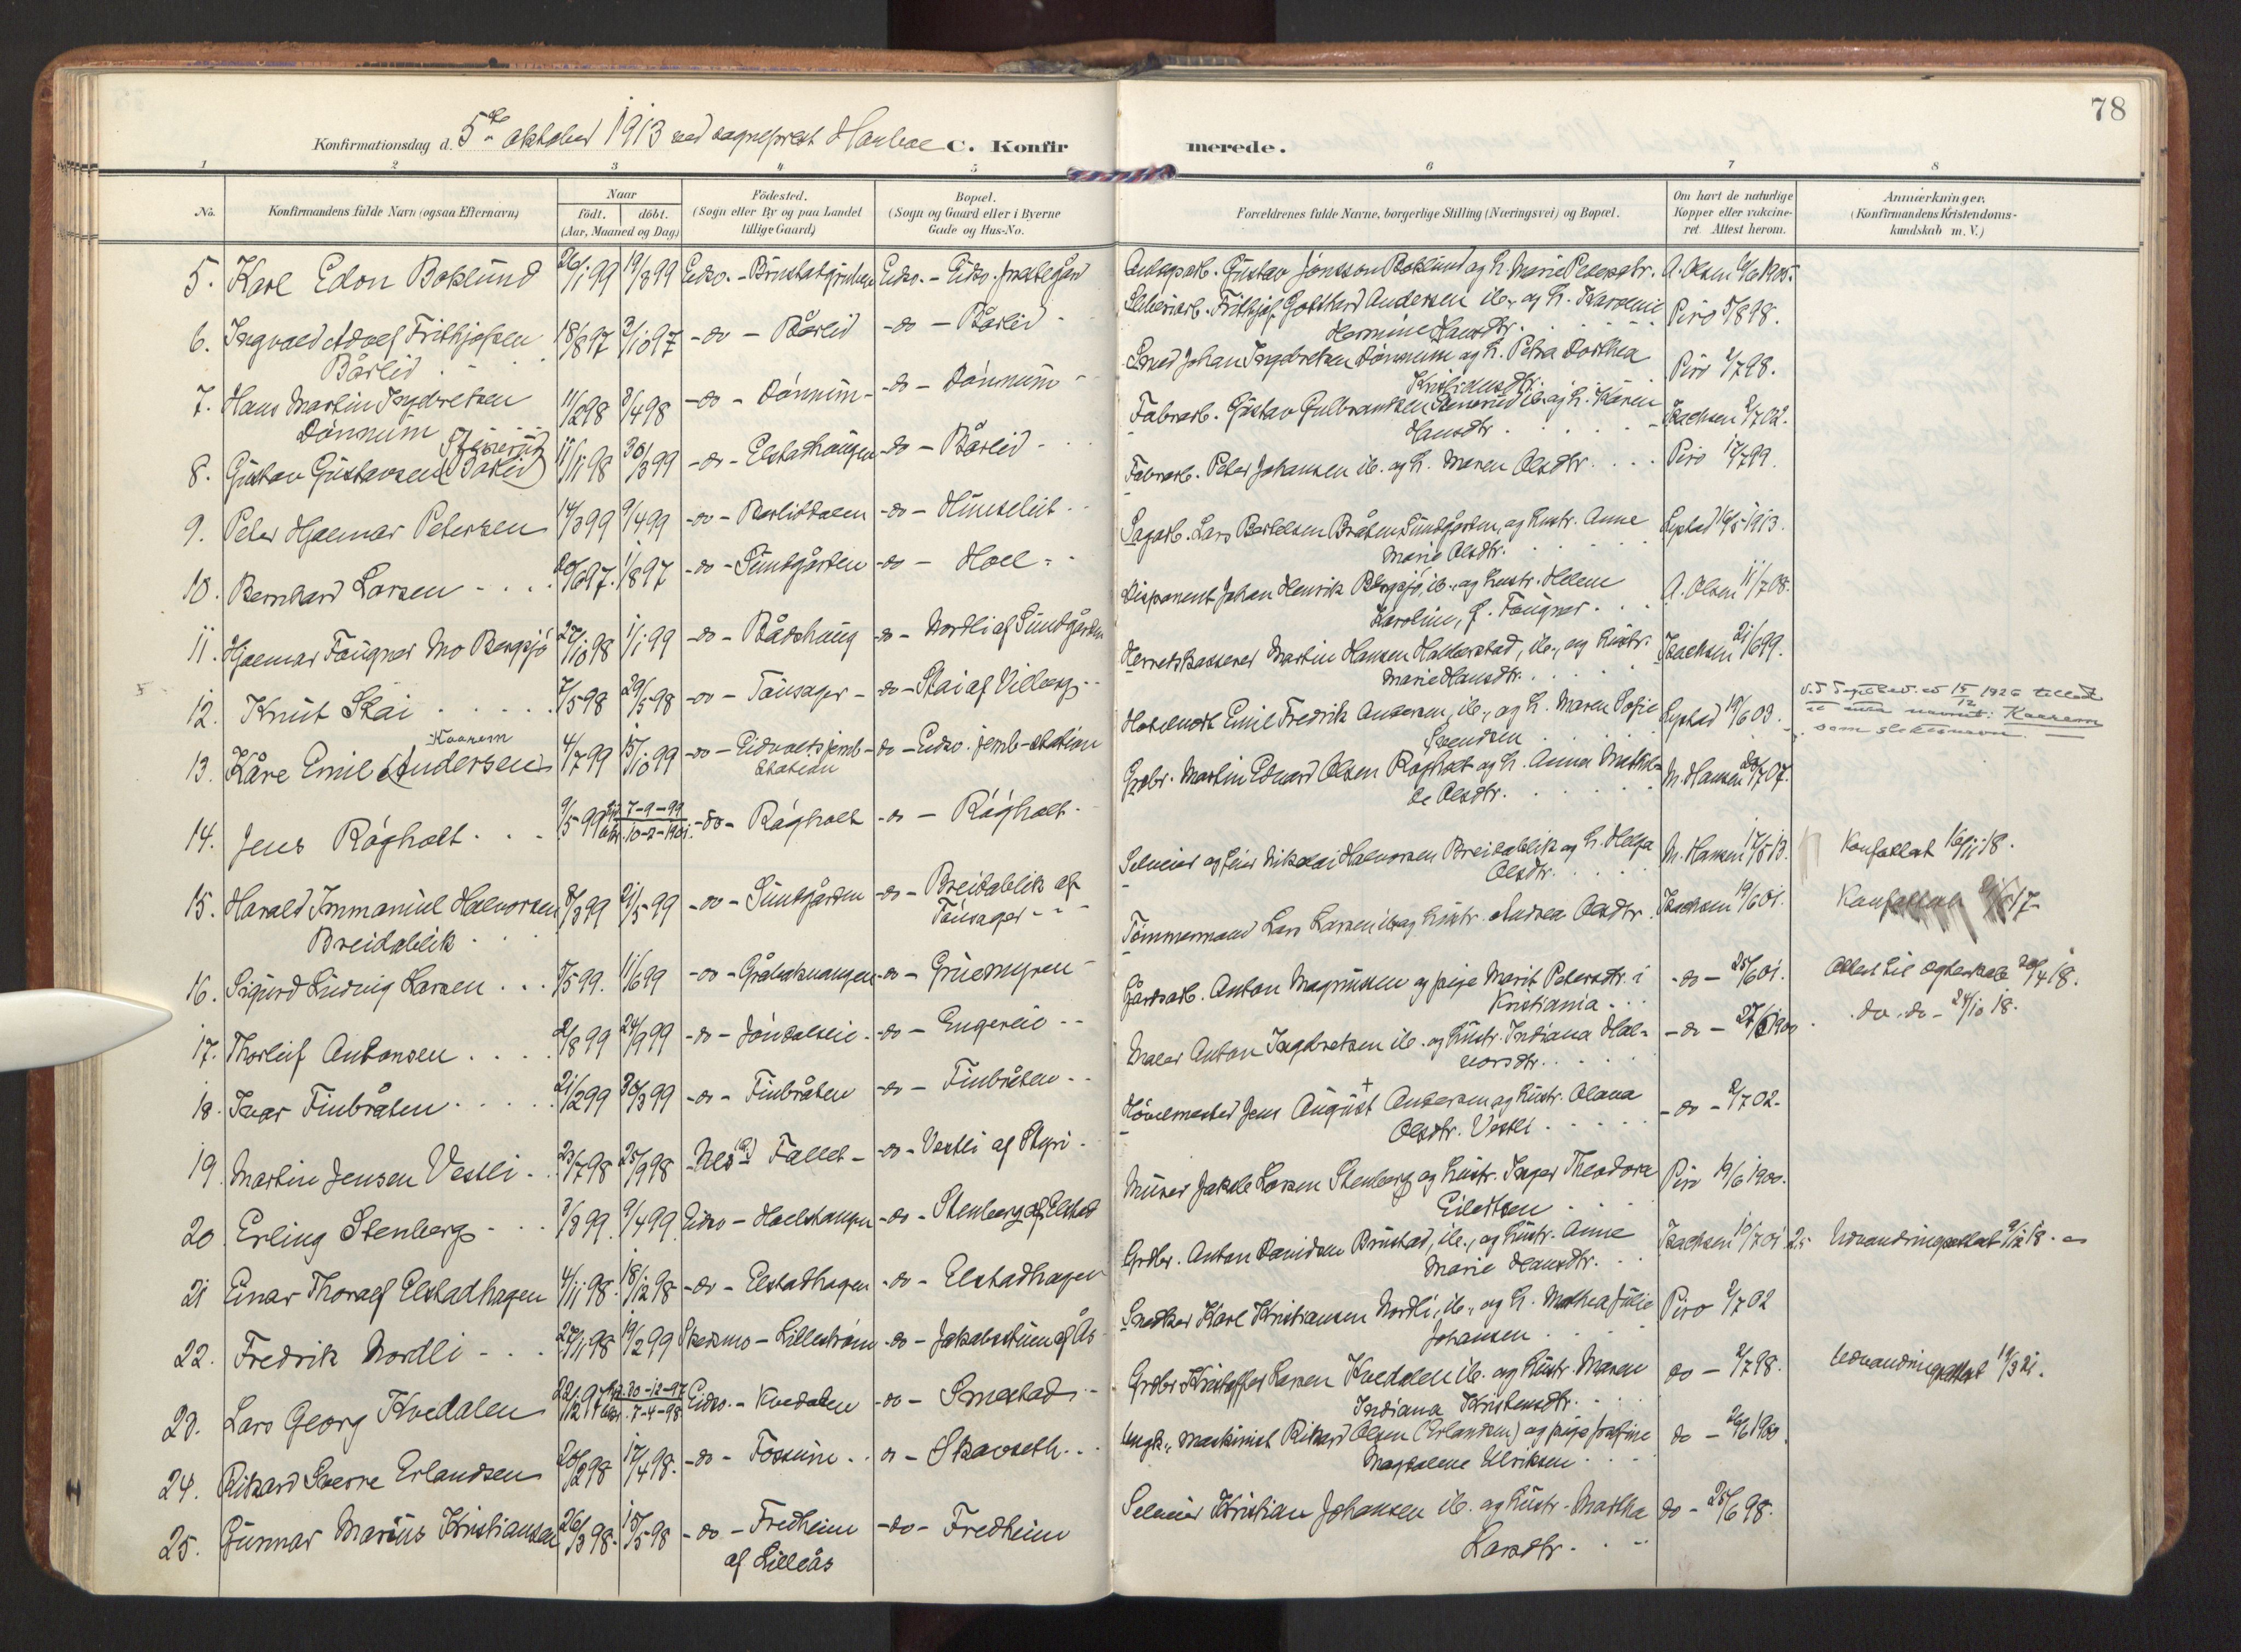 78
Konfirmationsdag d. 5te oktober 1913 ved sogneprest C. Konfirmerede.
1 2 3 4 5 6 7 8
No. Konfirmandens fulde Navn (ogsaa Efternavn) Naar födt. döbt. (Aar, Maaned og Dag) Födested. (Sogn eller By og paa Landet tillige Gaard) Bopæl. (Sogn og Gaard eller i Byerne Gade og Hus-No. Forældrenes fulde Navne, borgerlige Stilling (Næringsvei) og Bopæl. Om havt de naturlige Kopper eller vakcineret Attest herom. Anmærkninger. (Konfirmandens Kristendomskundskab m. V.)
5. Karl Edon Boklund 26/1 99 19/3 99 Eidsv. - Eidsv. - Eidsv. prestegård Gustav Jonsson Boklund og h. Marie A. Olsen
6. Ingvald Adolf Frithjofsen 18/8 97 3/10 97 -do- Bårlid -do- Bårlid Frithjof Gotthard Andersen ib. og h. Karoline Piro 5/8 98.
Bårlid Hermine Hansdtr.
7. Hans Martin Ingebretsen 11/2 98 3/4 98 -do- Dønnum -do- Dønnum Smed Johan Ingebretsen Dønnum og h. Petra Dorthea Piro 2/7 98.
Dønnum Kristiansdtr.
8. Gustav Gustavsen (Bårlid) 11/11 98 30/3 99 -do- Elstadhaugen -do- Bårlid Fabrarb. Gustav Gulbrandsen ib. og h. Karen Isachsen 2/7 02.
Hansdtr.
9. Peter Hjalmar Petersen 14/3 99 9/4 99 -do- Bårliddalen -do- Fabrarb. Peter Johansen ib. og h. Maren Olsdtr. Piro 12/7 99.
10. Bernhard Larsen 20/6 97. 1/8 97 -do- Sundgården -do- Hoel Sagarb. Lars Bertelsen Bråten Sundgården, og hustr. Anne Lystad 16/5 1913.
Marie Olsdtr.
11. Hjalmar Faugner Mo Bergsjø 27/10 98 1/1 99 -do- Bådshaug -do- Nordli af Sundgården Disponent Johan Henrik Bergsjø, ib., og hustr. Helene A. Olsen 11/7 08.
Karoline, f. Faugner.
12. Knut Stai 7/5 98 29/5 98 -do- Tausager -do- Stai af Vilberg Herredskasserer Martin Hansen Halderstad, ib., og hustr. Isachsen 21/6 99.
Marie Hansdtr.
13. Kåre Emil (Andersen) Kaarem 4/7 99 15/10 99 -do- Eidsvolds jernb- station -do- Eidsv. jernb-station Hotelvert Emil Fredrik Andersen, ib., og h. Maren Sofie Lystad 19/6 03.
Svendsen 15/12 1926 tillad
navnet: Kaarem
som slektsnavn.
14. Jens Rågholt 9/5 99 7-9-99 10-2-1901. -do- Rågholt -do- Rågholt Grdbr. Martin Edvard Olsen Rågholt og h. Anna Mathil- M. Hansen 20/7 07.
de Olsdtr.
15. Harald Immanuel Halvorsen 8/3 99 21/5 99 -do- Sundgården -do- Breidablik af Selveier og Nikolai Halvorsen Breidablik og h. Helga M. Hansen 17/5 13. Konfattest 16/11 18.
Breidablik Tausager Olsdtr.
16. Sigurd Ludvig Larsen 5/5 99. 11/6 99 -do- -do- Gruemyren Tømmermand Lars Larsen ib. og hustr. Andrea Olsdtr. Isachsen 19/6 01. Konfattest
17. Thorleif Antonsen 2/8 99 24/9 99 -do- Jøndalseie -do- Engereie Gårdsarb. Anton Magnussen og pige Marit Petersdtr. i -do- 25/6 01. Attest til egteskab 20/4 18.
Kristiania
18. Ivar Finbråten 21/2 99 30/3 99 -do- Finbråten -do- Finbråten Maler Anton Ingebretsen ib. og hustr. Indiana Hal- -do- do. do - 24/10 18.
vorsdtr.
19. Martin Jensen Vestli 23/7 98 25/9 98 Nes - Fallet -do- Vestli af Styri Høvelmester Jens August Andersen og hustr. Olava -do- 2/7 02.
Olsdtr. Vestli
20. Erling Stenberg 3/3 99. 9/4 99. Eidsv. - Hoelshaugen -do- Stenberg af Elstad Murer Jakob Larsen Stenberg og hustr. Inger Theodora Piro 19/6 1900.
Eilertsen
21 Einar Thoralf Elstadhagen 4/11 98. 18/12 98 -do- Elstadhagen -do- Elstadhagen Grdbr. Anton Davidsen Brustad, ib., og hustr. Anne Isachsen 10/7 01 Udvandringsattest 9/12 18.
Marie Hansdtr.
22. Fredrik Nordli 27/11 98 19/2 99 Skedsmo - Lillestrøm -do- Jakobsstuen af Ås Snedker Karl Kristiansen Nordli, ib., og h. Mathea Julie Piro 2/7 02
Johansen
23. Lars Georg Kvedalen 22/12 97 30-12-97 7-4-98 Eidsv. - Kvedalen -do- Smestad Grdbr. Kristoffer Larsen Kvedalen ib. og hustr. Maren do - 2/7 98. Udvandringsattest 19/3 21.
Indiana Kristensdtr.
24. Rikard Sverre Erlandsen 20/2 98 17/4 98. -do- Fossum do - Skavseth Ungk., maskinist Rikard Olsen (Erlandsen) og pige Josefine do - 26/6 1900.
Magdalene Ulriksen
25. Gunnar Marius Kristiansen 26/3 98. 15/5 98 -do- Fredheim -do- Fredheim Selveier Kristian Johansen ib. og hustr. Martha do - 25/6 98.
af Lilleås Larsdtr.